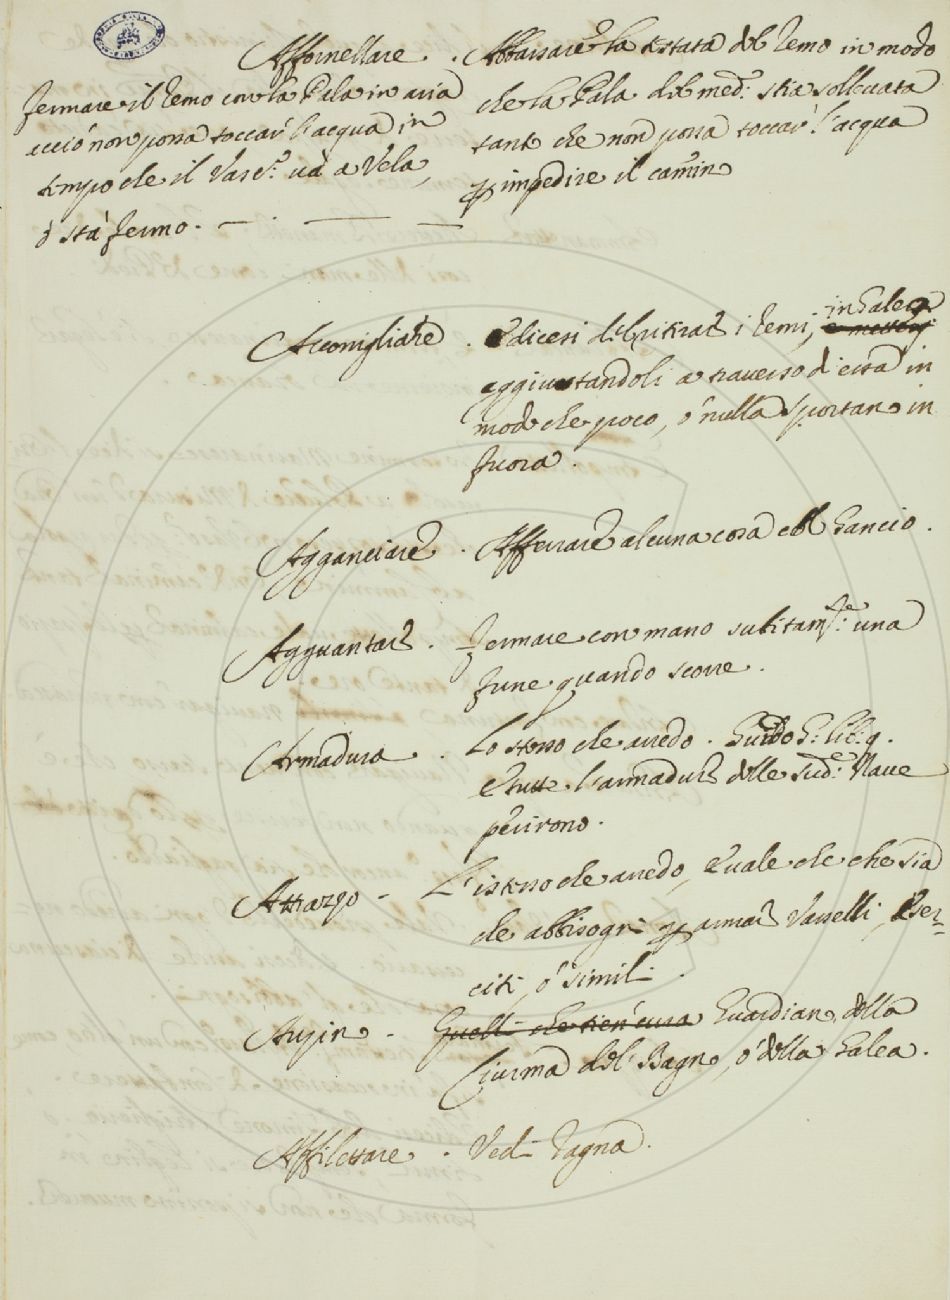 Affornellare . Abbassare la testata del remo in modo
che la Pala del med: stia sollevata
tanto che non possa toccar l'acqua
impedire il camin
fermare il remo con la Pala in aria
acciò non possa toccar l'acqua in
tempo che il Vasc: và a Vela,
ò stà fermo.
Acconigliare . dicesi del ritirar i remi, in Galera
aggiustandoli a traverso d'essa in
modo che poco, ò nulla sportano in
fuora.
Agganciare . Afferrare alcuna cosa col Gancio.
Agguantare . Fermare con mano subitam:te una
fune quando scorre.
Armadura . Lo stesso che arredo. Guido G: lib: 9.
E tutte l'armadure delle sud:e Nave
perirono.
Attrazzo - L'istesso che arredo, e quale che che sia
che abbisogni armar Vasselli, Eser=
citi, ò simili.
Auzin - Quelli che tien cura Guardian della
Ciurma del Bagno, ò della Galea.
Affilettare . Vedi